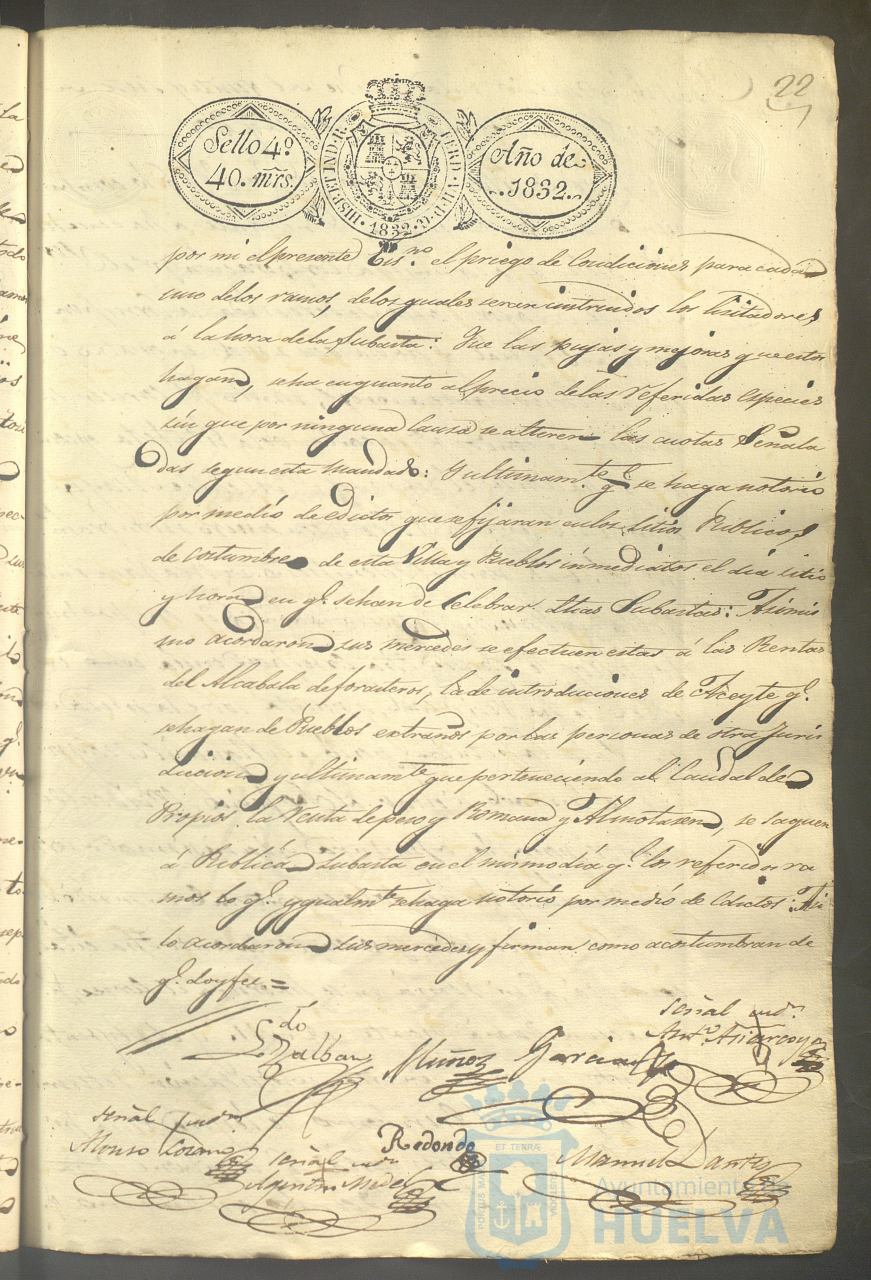 22
Sello 4º
40. mrs.
HISP. ET IND. R.
FERD. VII. D. G.
1832
Año de
1832.
por mi el presente Esno. el priego de Condiciones para cada
uno de los ramos, de los quales seran intruidos los lisitadores
á la hora de la subasta: Que las pujas y mejoras que estos
hagan, sea en quanto al precio de las referidas especies
sin que por ninguna causa se alteren las cuotas Señala
das segun esta mandado: Y ultimamte. qe. se haga notorio
por medio de edictos que se fijaran en los sitios Publicos
de costumbre de esta Villa y Pueblos inmediatos el dia sitio
y hora en qe. se han de Celebrar dhas Subastas: Asimis
mo acordaron sus mercedes se efectuen estas á las Rentas
del Alcabala de forasteros, la de introduciones de Aceyte qe.
se hagan de Pueblos extraños por las personas de otra Juris
dicion y ultimamte. que perteneciendo al Caudal de
Propios la Renta de peso y Romana y Almotasen, se saquen
á Publica subasta en el mismo dia qe. los referidos ra
mos lo qe. ygualmte. se haga notorio por medio de Edictos: Asi
lo acordaron sus mercedes y firman como acostumbran de
qe. doy fee =
Ldo.
Muñoz
Garcia
señal
señal
Alonso
Redondo
señal
Manuel
PORTUS MARIS ET TERRÆ CUSTODIA
Ayuntamiento de
HUELVA